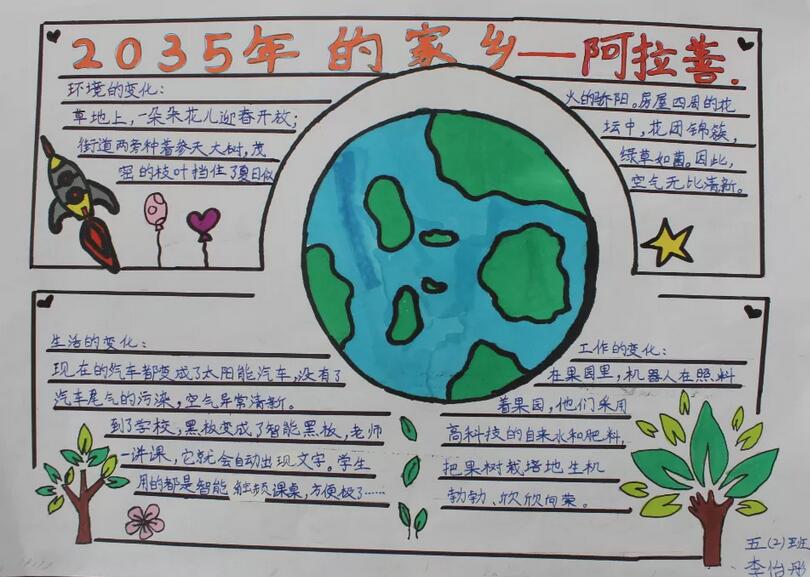 2035年的家乡—阿拉善.
环境的变化:
草地上,一朵朵花儿迎春开放;
街道两旁种着参天大树,茂
密的枝叶挡住了夏日似
火的骄阳。房屋四周的花
坛中,花团锦簇,
绿草如茵。因此,
空气无比清新。
生活的变化:
现在的汽车都变成了太阳能汽车,没有了
汽车尾气的污染,空气异常清新。
到了学校,黑板变成了智能黑板,老师
一讲课,它就会自动出现文字。学生
用的都是智能触频课桌,方便极了……
工作的变化:
在果园里,机器人在照料
着果园,他们采用
高科技的自来水和肥料,
把果树栽培地生机
勃勃、欣欣向荣。
五(2)班
李怡彤